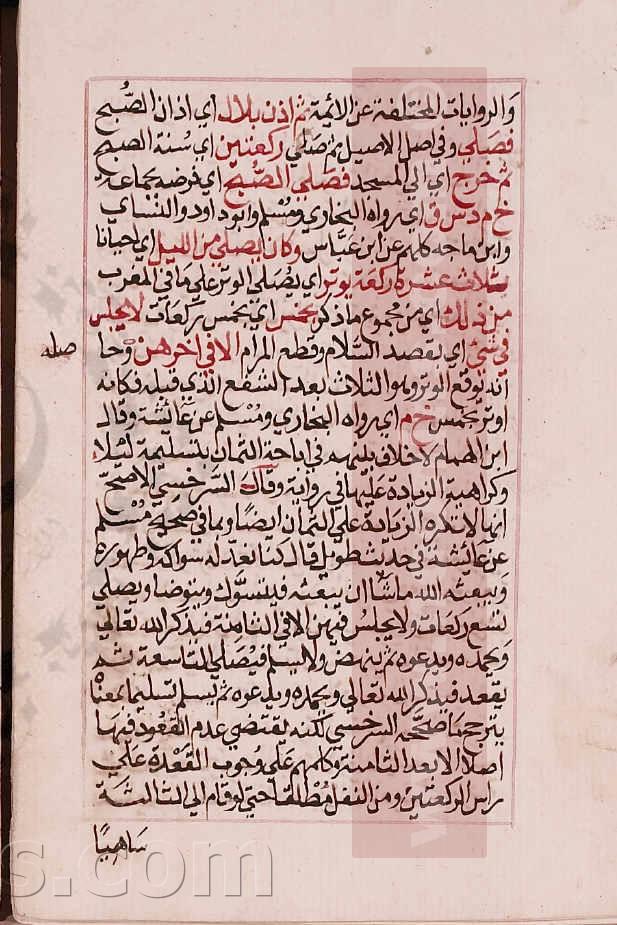 والروايات المختلفة عن الائمة ثم اذن بلال اي اذان الصُّبح
فصَلي وفي اصل الاصيل ثم صَلي ركعتين اي سُنة الصبح
ثم خرج اي الي المسجد فصَلي الصُّبح اي فرضه بجماعة
خ م د س ق اي رواه البخاري ومُسْلم وابو داود والنساي
وابن ماجه كلهم عن ابن عبَّاس وكان يصَلي من الليل اي احيانا
بثلاث عشرة ركعة يوتر اي يُصَلي الوتر علي مَا في المغرب
من ذلك اي من مجموع ما ذكر بخمس اي بخمس ركعات لا يجلس
في شي اي بقصد السَّلام وقطع المرام الا في اخرهن وحا
صله
انه توقع الوتر وهو الثلاث بعد الشفع الذي قبله فكانه
اوتر بخمس خ م اي رواه البخاري ومُسْلم عن عَائشة وقال
ابن الهمام لا خلاف بينهم في اباحة الثمان بتسليمة ليْلا
وكراهية الزيادة عَليها في رواية وقال السَّرخسِي الاصحّ
انها لا تكره الزيادة علي الثمان ايضًا وبما في صحيح مُسْلم
عن عَائشة في حديث طويل قال كنا نعدّ له سواكه وطهوره
وَيبعثه الله ما شا ان يبعثه فيتسوّك ويتوضا ويصلي
تسع ركعات ولا يجلسُ فيهن الا في الثامنة فيذكر الله تعالي
وَيحمده ويدعوه ثم ينهض ولا يسلم فيصَلي التاسعة ثم
يقعد فيذكر الله تعالي ويحمده ويدعوه ثم يسلم تسليما يسمعنا
يترجح مَا صَحَّحه السرخسي لكنه يقتضي عدم القعُود فيهَا
اصلا الا بعد الثامنة وكلمهم عَلي وُجوب القعْدة عَلي
راس الركعتين ومن النفل مُطْلقا حتي لو قام الي الثالثة
سَاهيًا
s.com